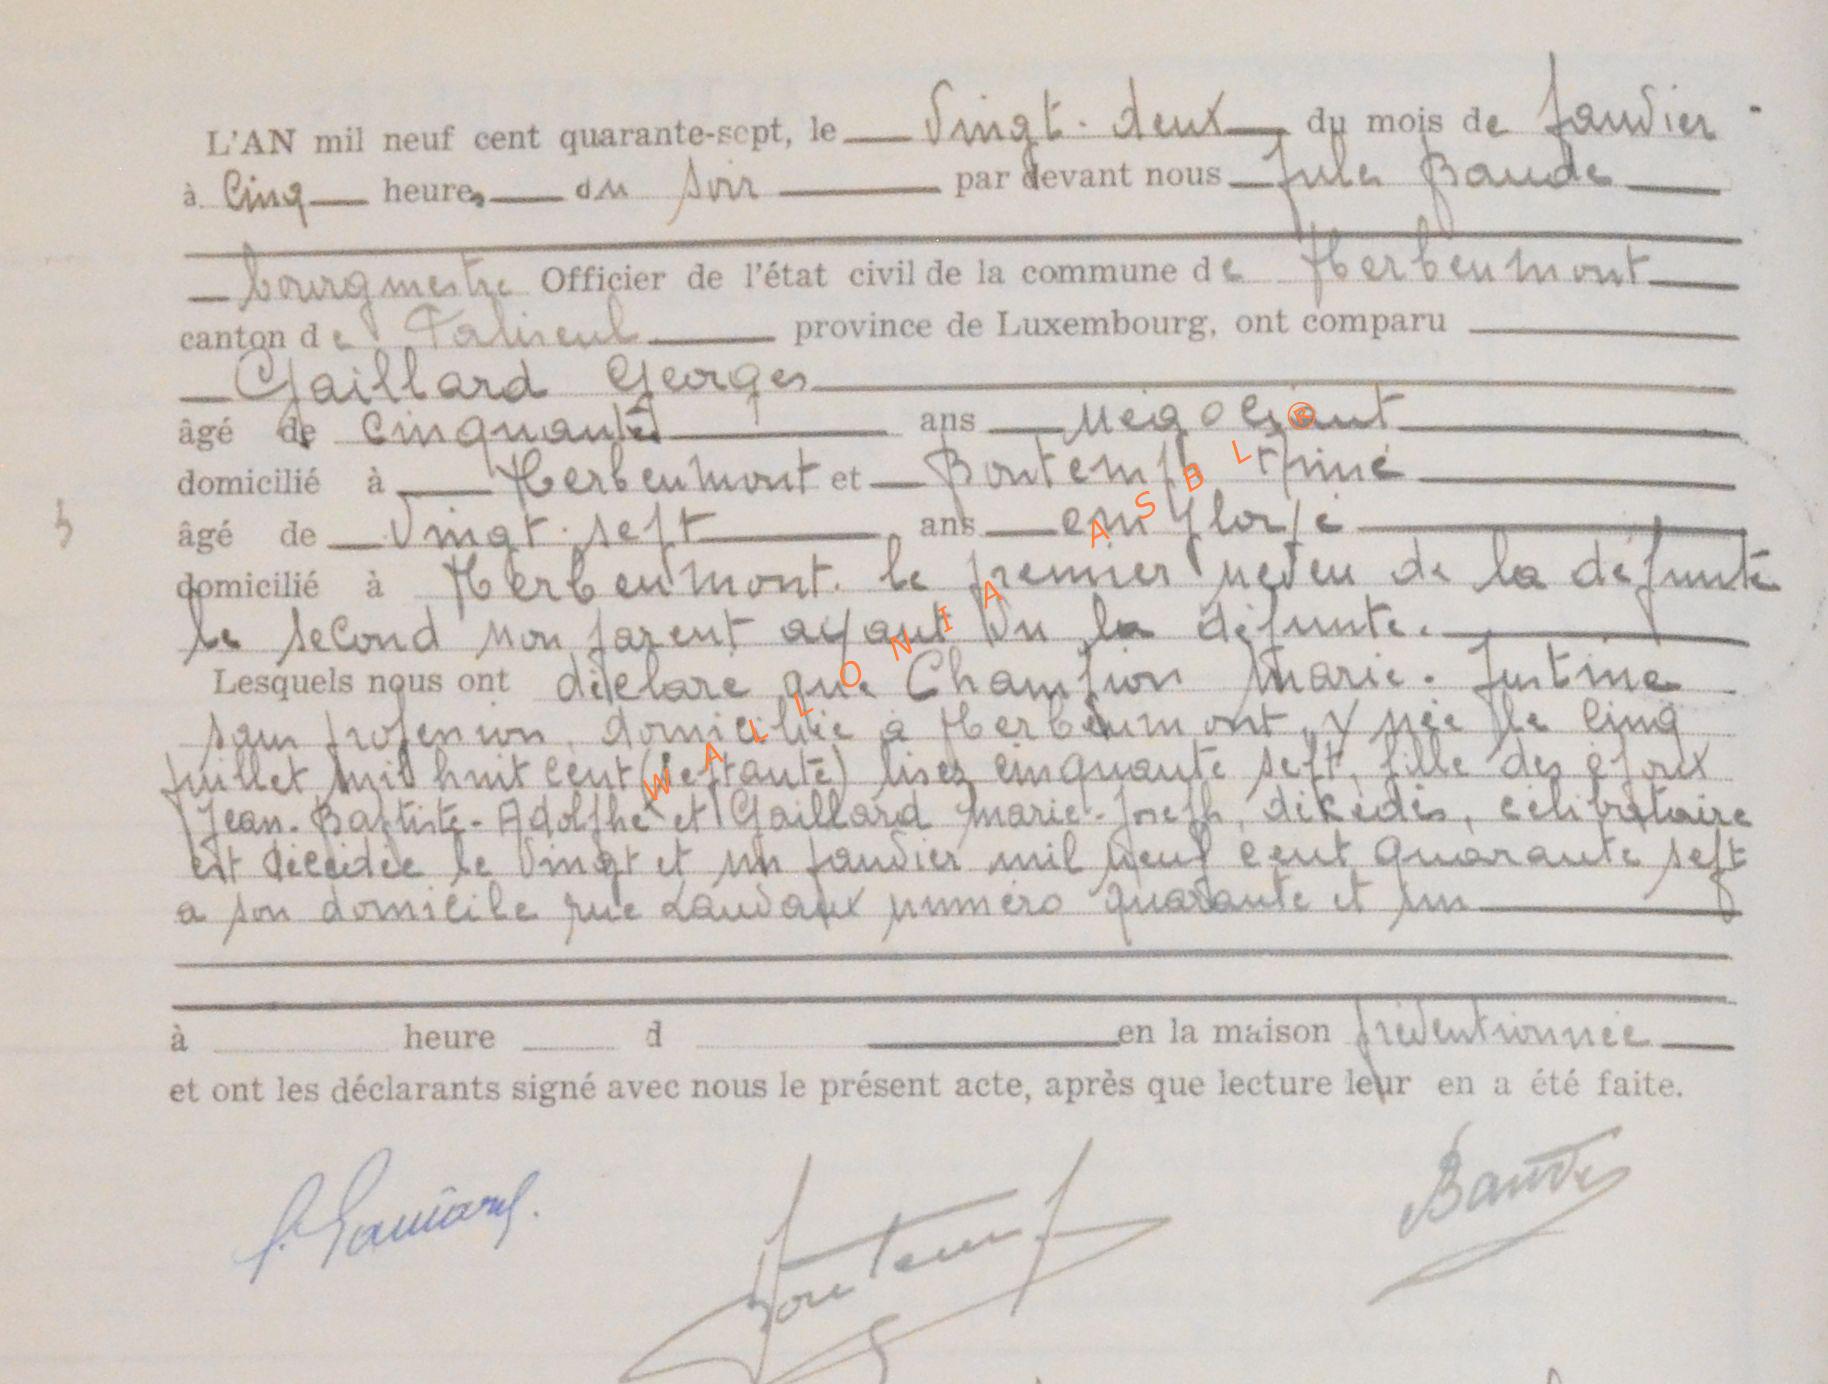 L'AN mil neuf cent quarante-sept, le Vingt-deux du mois de Janvier
à Cinq heures du soir par devant nous Jules Baude
bourgmestre Officier de l'état civil de la commune de Herbeumont
canton de Paliseul province de Luxembourg, ont comparu
Gaillard Georges
âgé de cinquante ans négociant
domicilié à Herbeumont et Bontemps
âgé de Vingt-sept ans employé
domicilié à Herbeumont. le premier neveu de la défunte
le second non parent ayant vu la défunte.
Lesquels nous ont déclaré que Champion Marie-Justine
sans profession, domiciliée à Herbeumont, y née le cinq
juillet mil huit cent (septante) lisez cinquante sept, fille des époux
Jean-Baptiste-Adolphe et Gaillard Marie-Joseph, décédés, célibataire
est décédée le Vingt et un janvier mil neuf cent quarante sept
a son domicile rue Lauvaux numéro quarante et un
à heure d en la maison préventionnée
et ont les déclarants signé avec nous le présent acte, après que lecture leur en a été faite.
G. Gaillard. Bontemps Baude
WALLONIA ASBL ®